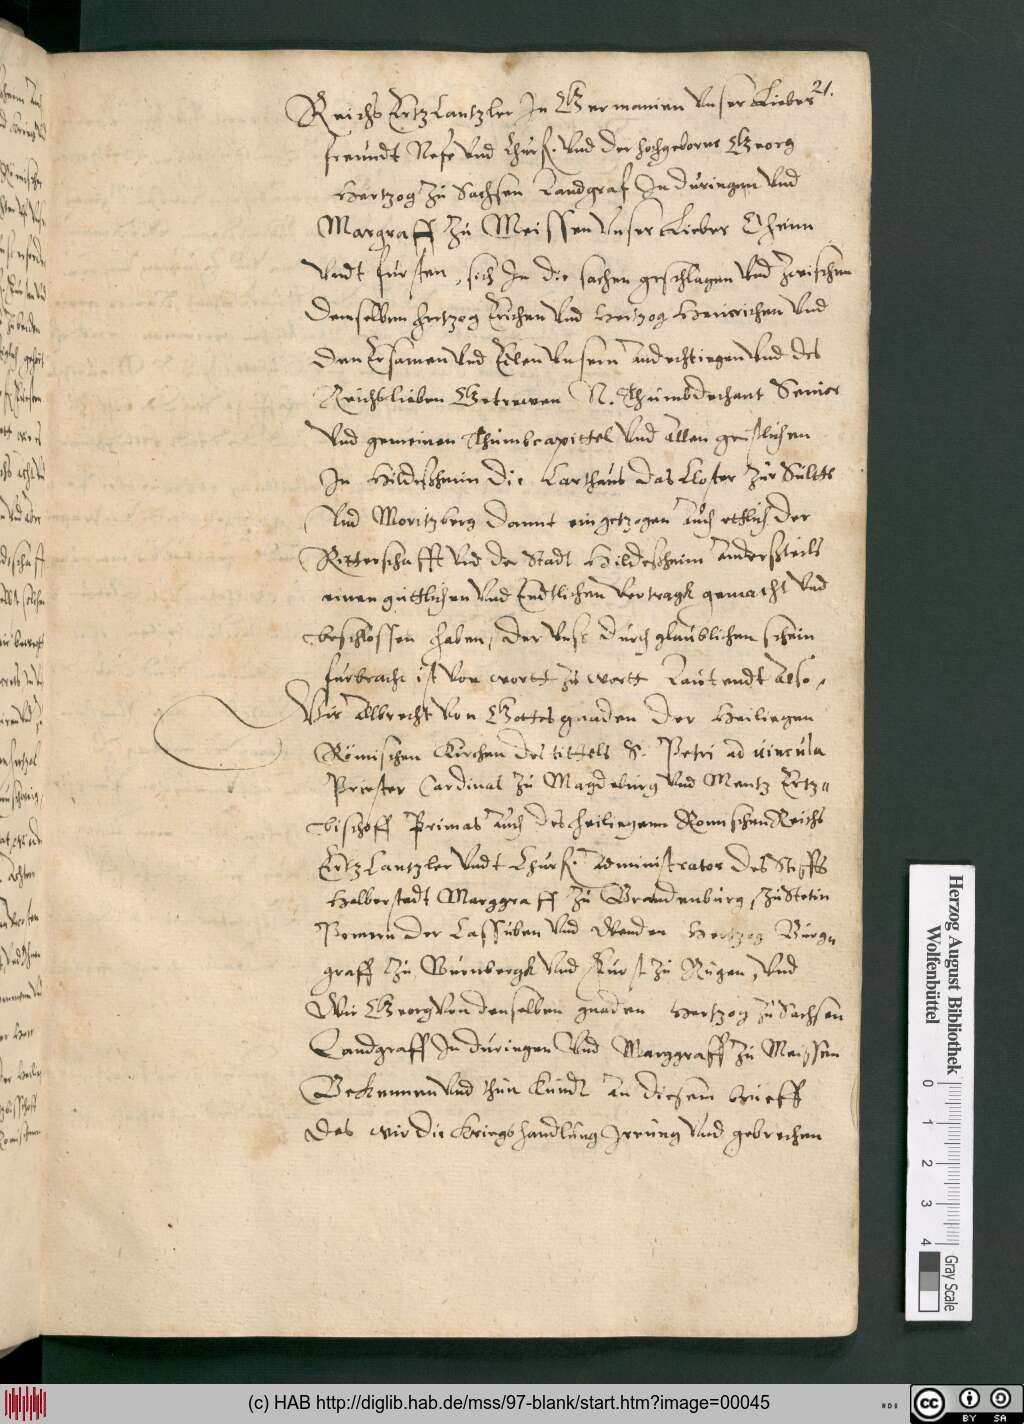 21.
Reichs Ertz Cantzler In Germanien Unser Lieber
freundt Nefe Und Churf. Und der hochgeborne Georg
Hertzog Zu Sachsen Landgraf In düringen Und
Margraff Zu Meissen Unser Lieber Oheim
Undt fürsten, sich In die sachen geschlagen Und Zwischen
Demselben Hertzog Erichen Und Hertzog Heinrichen Und
Den Ersamen Und Edlen Unsern andechtiegen Und des
Reichs lieben Getrewen N. Thumbdechant Senior
Und gemeinen Thumbcapittel Und Allen geistlichen
In Hildeßheim Die Carthaus Das Closter Zur Sültte
Und Moritzberg Damit eingetzogen Auch etlich Der
Ritterschafft Und der Stadt Hildeßheim Anderßteils
einen güttlichen Und Endtlichen Vertragk gemacht Und
beschlossen haben, Der Unß Durch glaublichen schein
fürbracht ist Von wortt zu wortt Lautendt Also,
Wir Albrecht Von Gottes gnaden Der Heiliegen
Römischen Kirchen des tittels S. Petri ad vincula
Priester Cardinal Zu Magdeburg Und Mentz Ertz=
bischoff Primas Auch des heiliegenn Romischen Reichs
Ertz Cantzler Undt Churf. Administrator Des Stiffts
Halberstadt Marggraff Zu Brandenburg, Zu Stetin
Pomern Der Cassuben Und Wenden Hertzog Burg=
graff Zu Nurnbergk Und Fürst Zu Rügen, Und
Wir Georg Von denselben gnaden Hertzog zu Sachsen
Landgraff In düringen Und Marggraff Zu Meissen
Bekennen Und thun Kundt An diesem brieff
Das wir die Kriegshandlung Irrung Und gebrechen
Herzog August Bibliothek
Wolfenbüttel
0 1 2 3 4
Gray Scale
(c) HAB http://diglib.hab.de/mss/97-blank/start.htm?image=00045
cc BY SA